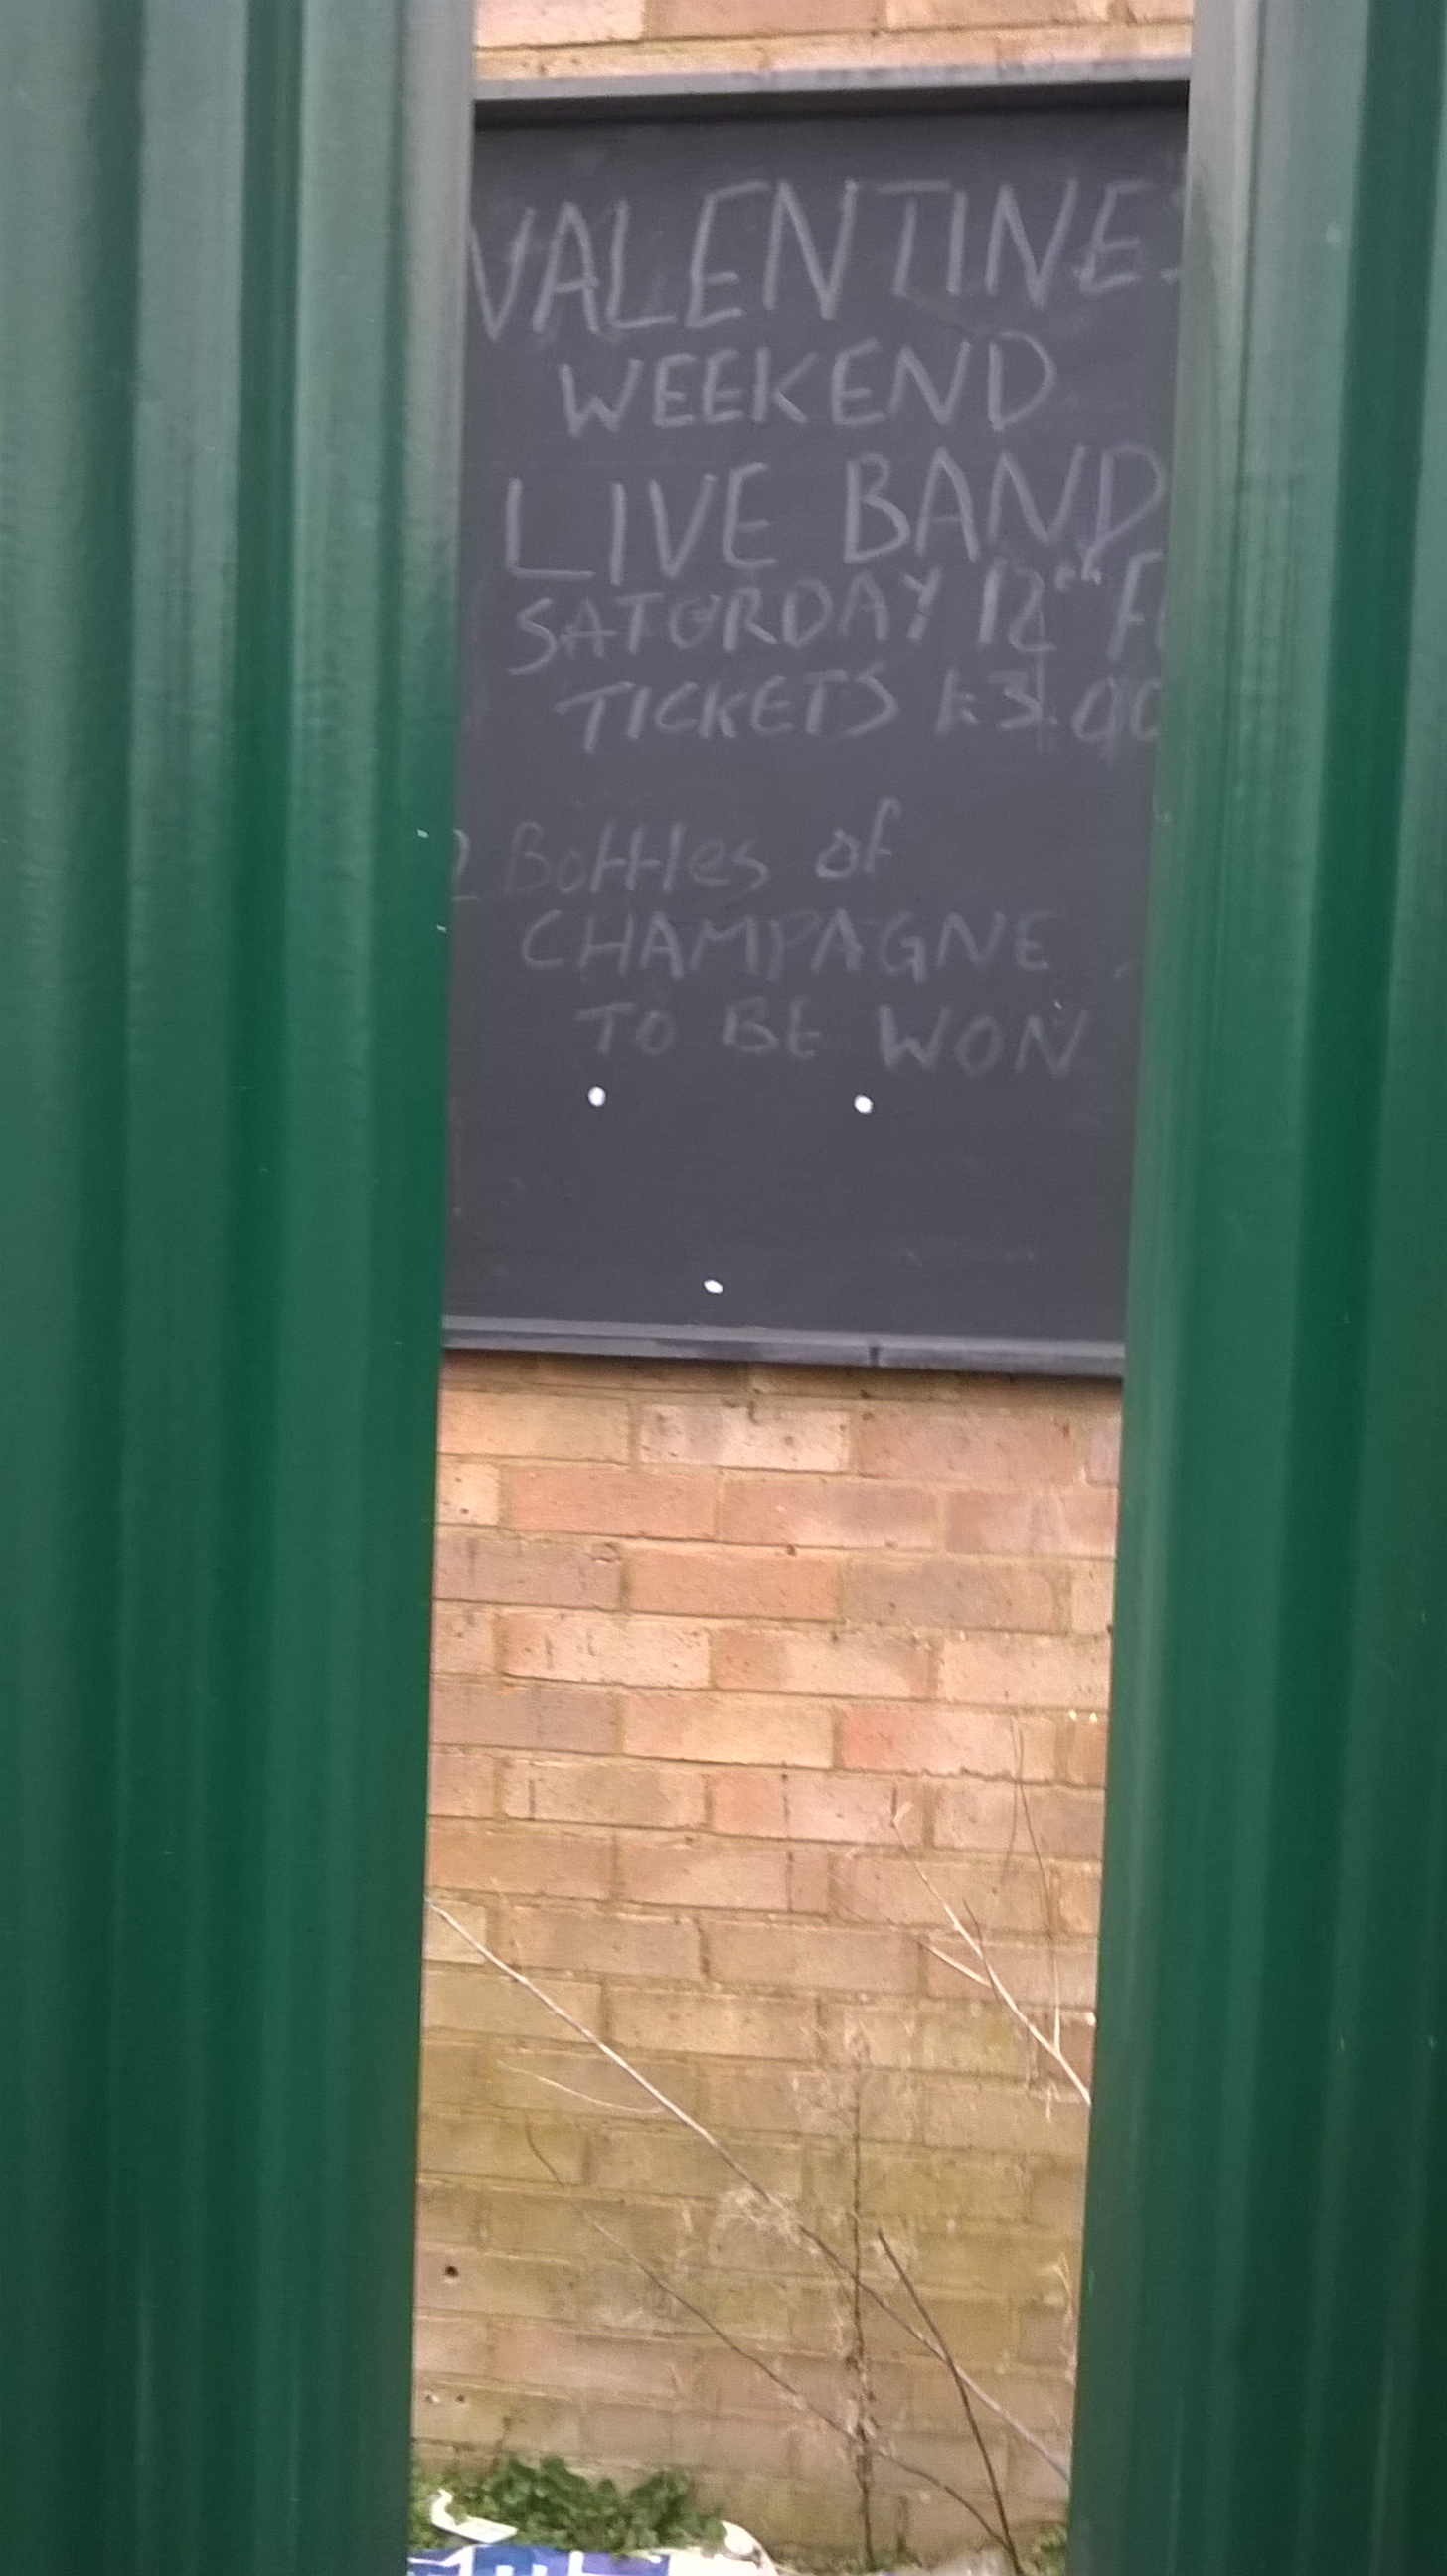 VALENTINES
WEEKEND
LIVE BAND
SATURDAY 12th F
TICKETS £3.00
2 Bottles of
CHAMPAGNE
TO BE WON